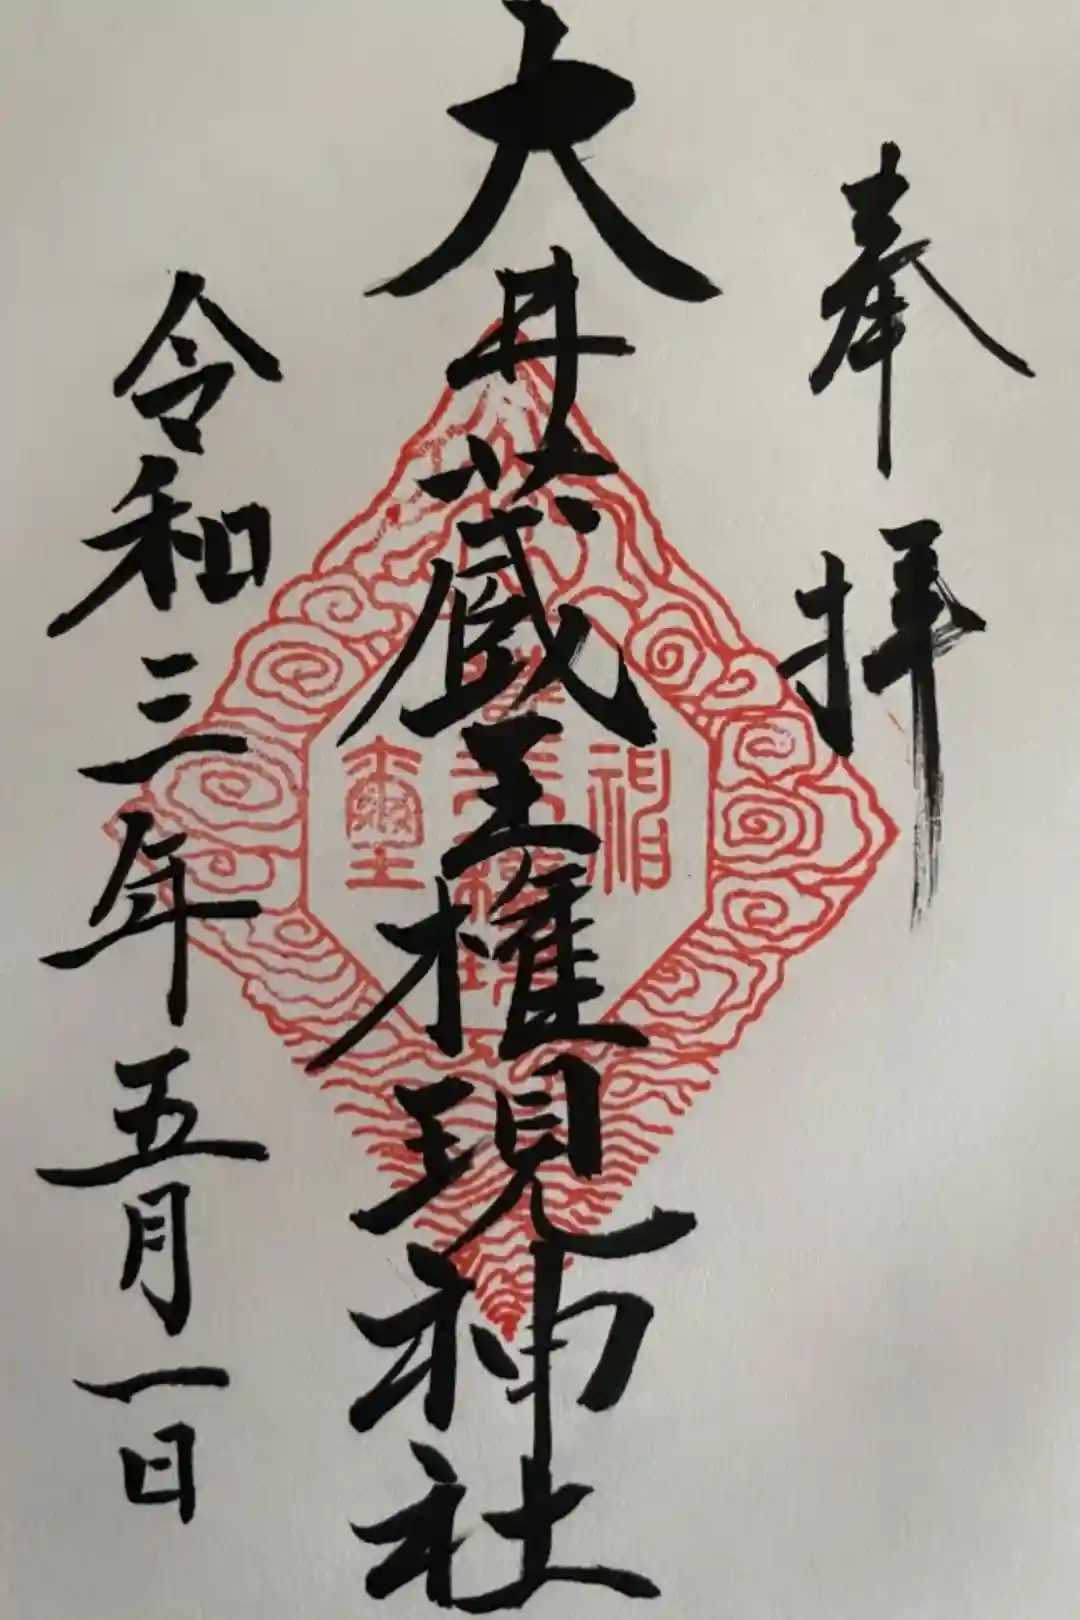 奉拝
大井蔵王権現神社
令和三年五月一日